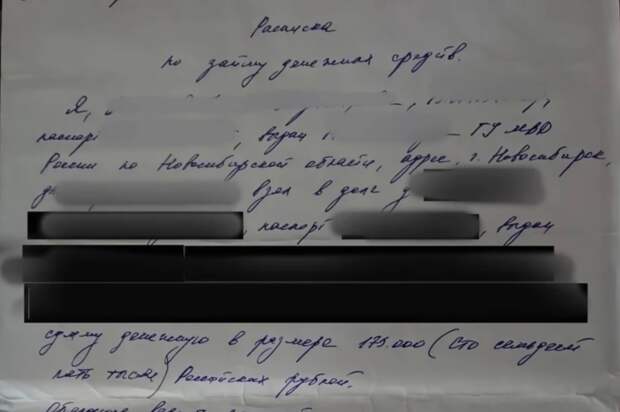 Расписка
по займу денежных средств.
Я,
паспорт , выдан г. ГУ МВД
России по Новосибирской области, адрес г. Новосибирск,
взял в долг у
, паспорт , выдан
сумму денежную в размере 175.000 (сто семьдесят
пять тысяч) Российских рублей.